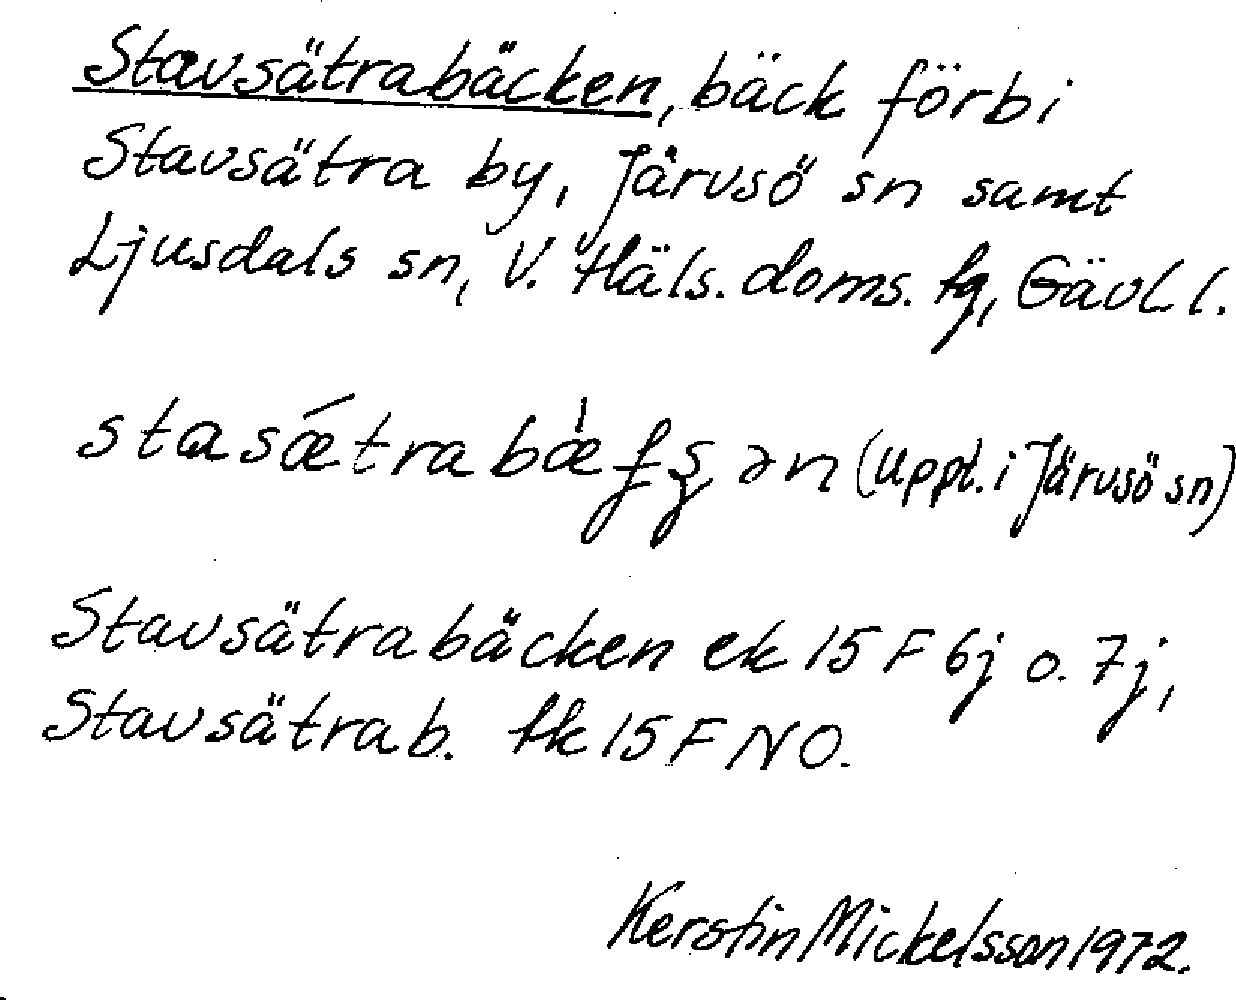 Stavsätrabäcken, bäck förbi
Stavsätra by, Järvsö sn samt
Ljusdals sn, V. Häls. doms. fg, Gävl. l.
(Uppt. i Järvsö sn)
Stavsätrabäcken ek 15 F 6j o. 7j,
Stavsätrab. tk 15 F NO.
Kerstin Mickelsson 1972.